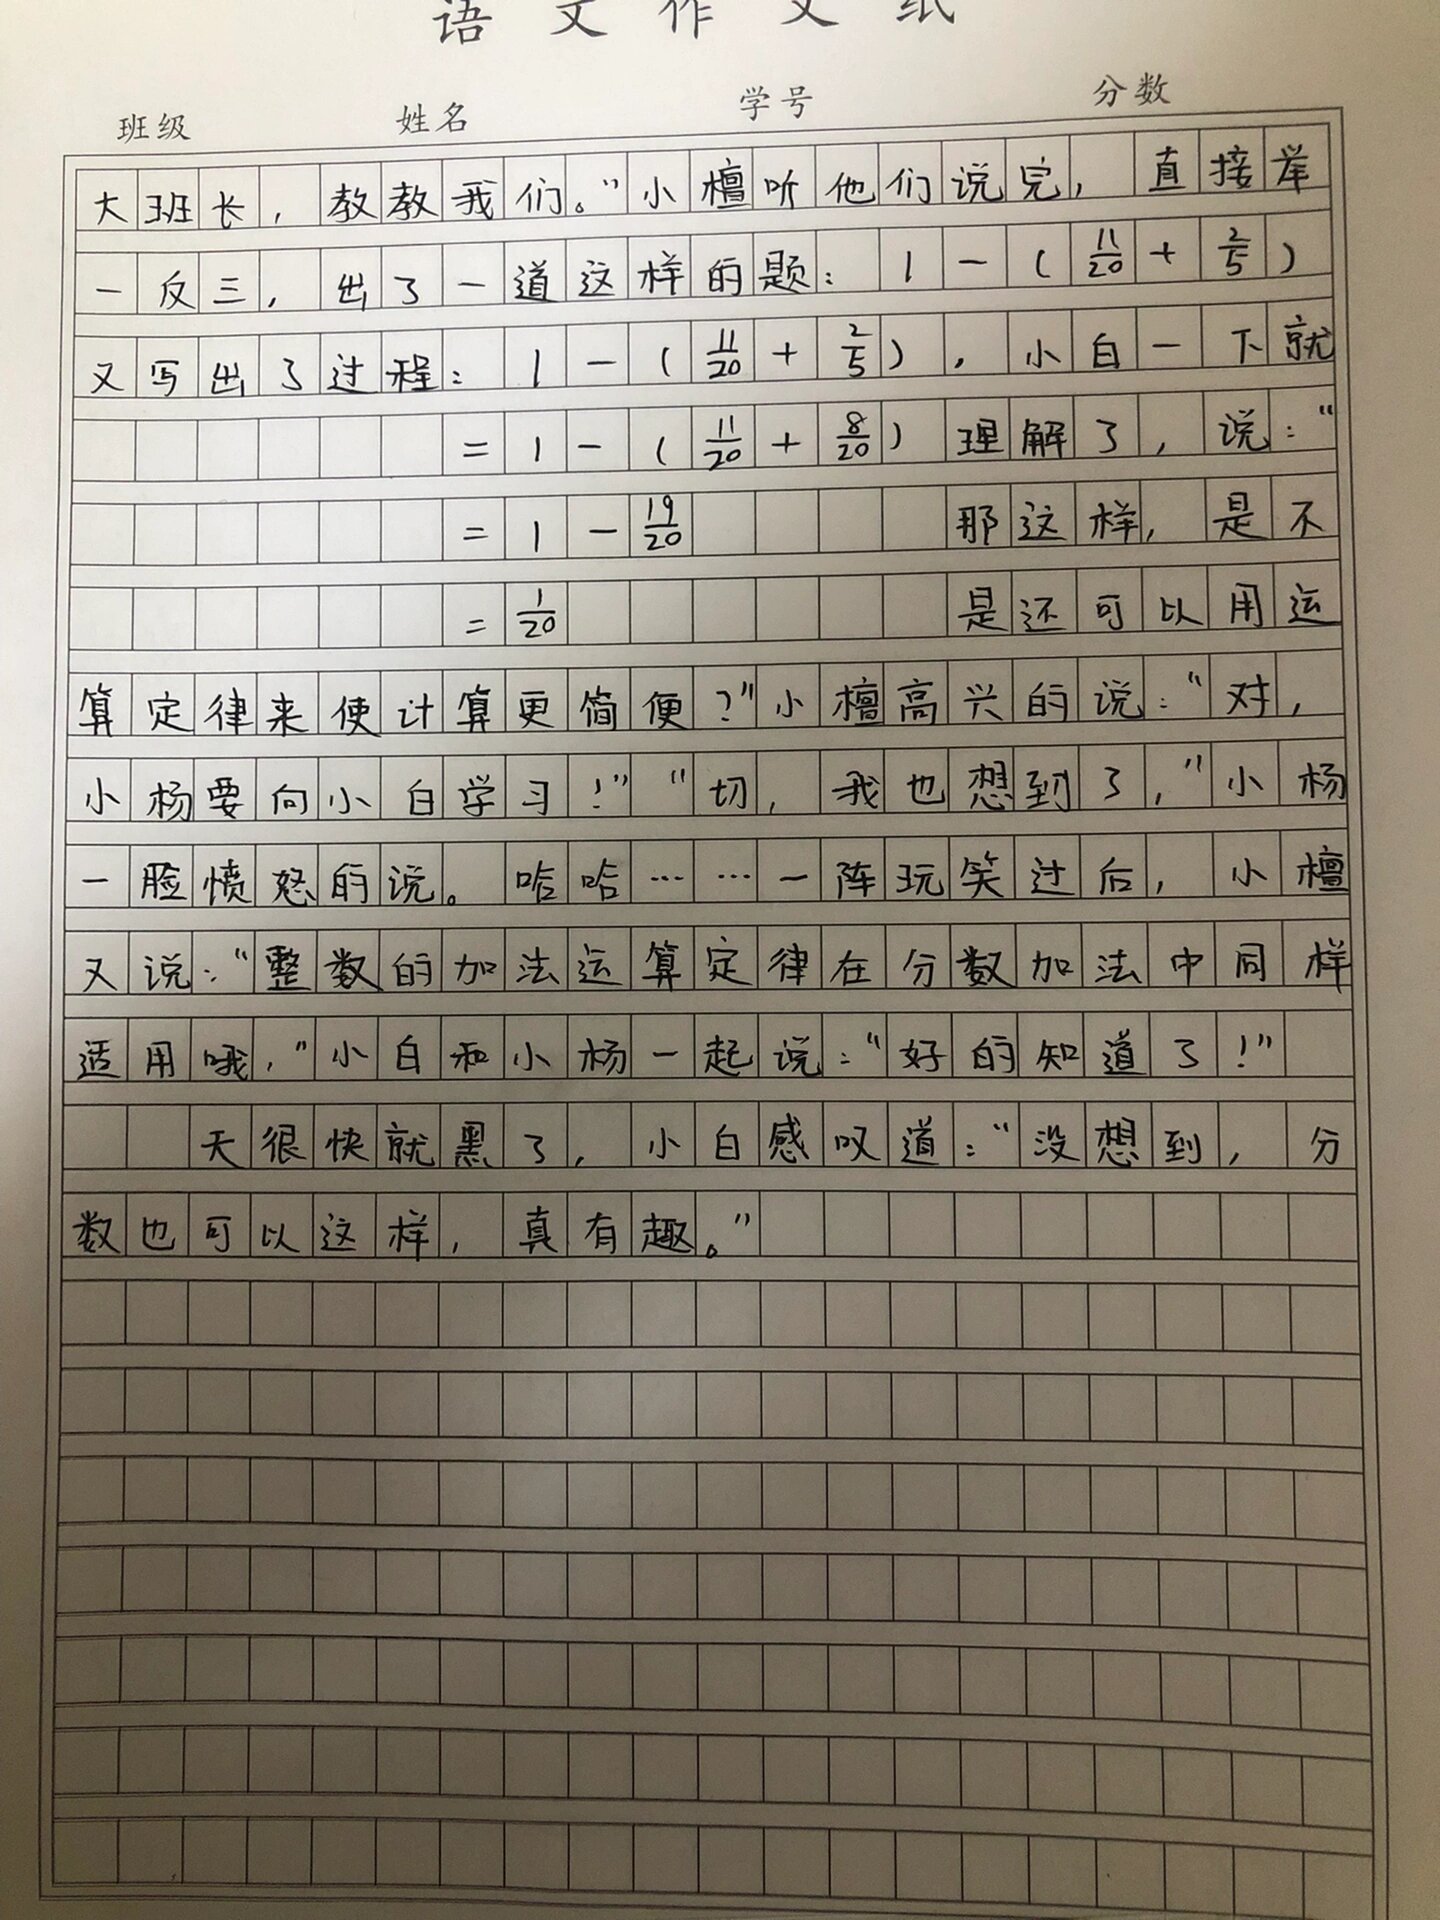 语文作文纸
班级 姓名 学号 分数
大班长，教教我们。”小檀听他们说完，直接举
一反三，出了一道这样的题：1-(11/20+2/5)
又写出了过程：1-(11/20+2/5)，小白一下就
=1-(11/20+8/20)理解了，说：“
=1-19/20 那这样，是不
=1/20 是还可以用运
算定律来使计算更简便？”小檀高兴的说：“对，
小杨要向小白学习！”“切，我也想到了，”小杨
一脸愤怒的说。哈哈……一阵玩笑过后，小檀
又说：“整数的加法运算定律在分数加法中同样
适用哦，”小白和小杨一起说：“好的知道了！”
天很快就黑了，小白感叹道：“没想到，分
数也可以这样，真有趣。”